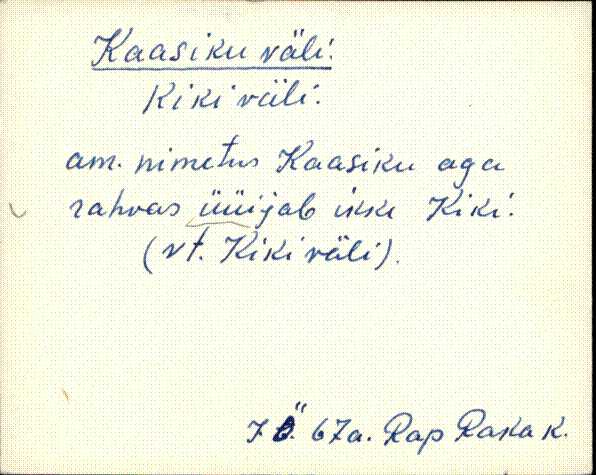 Kaasiku väli.
Kiki väli.
am. nimetus Kaasiku aga
rahvas üüijab ikke Kiki.
(vt. Kiki väli).
J Ö. 67a. Rap Raka k.